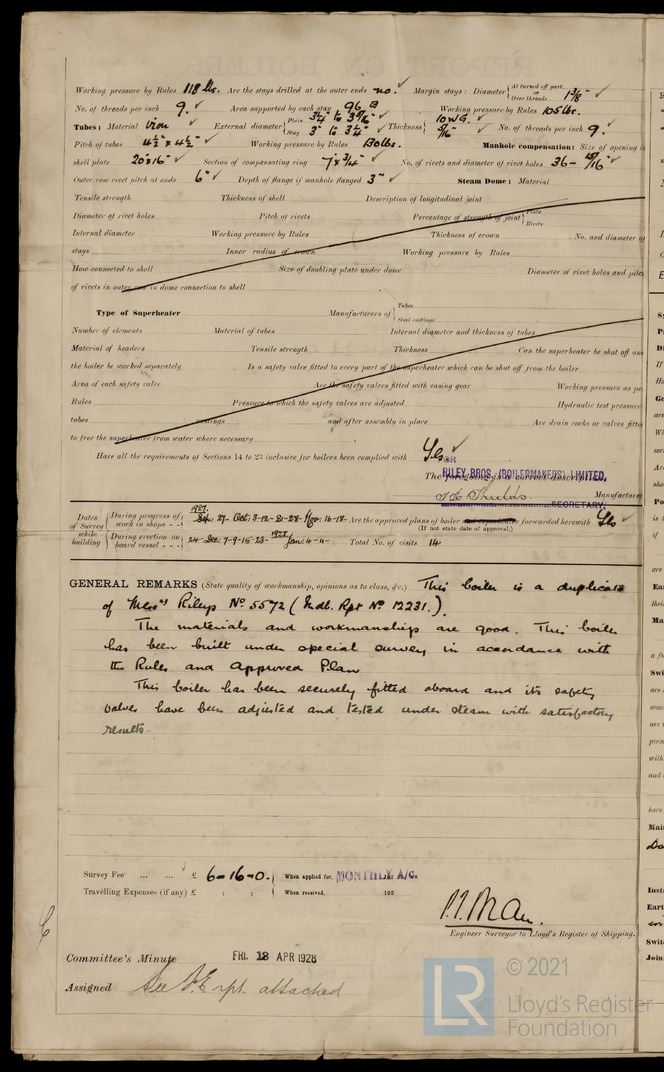 Working pressure by Rules 118 lbs. Are the stays drilled at the outer ends no. Margin stays: Diameter { At turned off part. or Over threads 1 3/8"
No. of threads per inch 9. Area supported by each stay 96 Working pressure by Rules 105 lbs.
Tubes: Material iron External diameter { Plain 3 1/4" to 3 7/16" Stay 3" to 3 1/4" Thickness { 10 WG. 5/16" No. of threads per inch 9.
Pitch of tubes 4 1/2" x 4 1/2" Working pressure by Rules 130 lbs. Manhole compensation: Size of opening in
shell plate 20" x 16" Section of compensating ring 7" x 3/4" No. of rivets and diameter of rivet holes 36 - 15/16"
Outer row rivet pitch at ends 6" Depth of flange if manhole flanged 3" Steam Dome: Material
Tensile strength Thickness of shell Description of longitudinal joint
Diameter of rivet holes Pitch of rivets Percentage of strength of joint { Plate Rivets
Internal diameter Working pressure by Rules Thickness of crown No. and diameter of
stays Inner radius of crown Working pressure by Rules
How connected to shell Size of doubling plate under dome Diameter of rivet holes and pitch
of rivets in outer row in dome connection to shell
Type of Superheater Manufacturers of { Tubes Steel castings
Number of elements Material of tubes Internal diameter and thickness of tubes
Material of headers Tensile strength Thickness Can the superheater be shut off and
the boiler be worked separately Is a safety valve fitted to every part of the superheater which can be shut off from the boiler
Area of each safety valve Are the safety valves fitted with easing gear Working pressure as per
Rules Pressure to which the safety valves are adjusted Hydraulic test pressure
tubes castings and after assembly in place Are drain cocks or valves fitted
to free the superheater from water where necessary
Have all the requirements of Sections 14 to 23 inclusive for boilers been complied with Yes
FOR
The foregoing is a correct description,
RILEY BROS. (BOILERMAKERS) LIMITED,
Manufacturer
SECRETARY.
Dates of Survey while building { During progress of work in shops - - 1927. Oct: 3-12-21-28- Nov: 16-18- Are the approved plans of boiler and superheater forwarded herewith Yes
(If not state date of approval.)
During erection on board vessel - - 24- Dec: 7-9-15-23- 1928 Jan: 4-11- Total No. of visits 14
GENERAL REMARKS (State quality of workmanship, opinions as to class, &c.) This boiler is a duplicate
of Messrs Rileys No. 5572 (Mdb. Rpt No. 12231.).
The materials and workmanship are good. This boiler
has been built under special survey in accordance with
the Rules and Approved Plan
This boiler has been securely fitted aboard and its safety
valves have been adjusted and tested under steam with satisfactory
results.
Survey Fee ... ... £ 6-16-0. When applied for, MONTHLY A/C.
Travelling Expenses (if any) £ : : When received, 192
Engineer Surveyor to Lloyd's Register of Shipping.
Committee's Minute FRI. 13 APR 1928
Assigned See F.E. rpt. attached
LR
© 2021
Lloyd's Register
Foundation